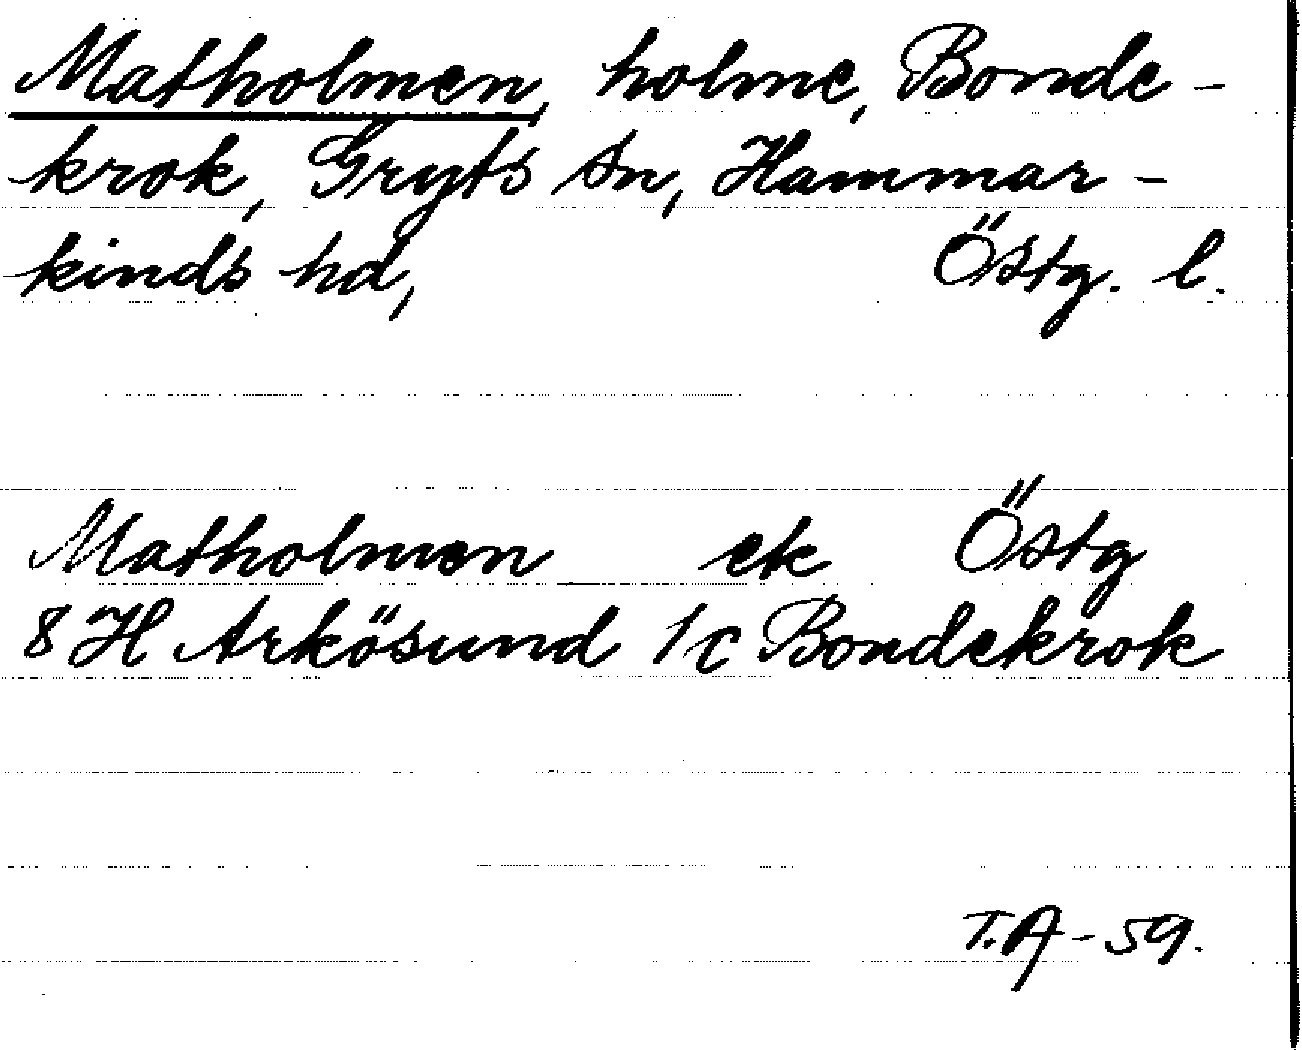 Matholmen, holme, Bonde-
krok, Gryts sn, Hammar-
kinds hd, Östg. l.
Matholmen ek Östg
8 H Arkösund 1c Bondekrok
T.A-59.